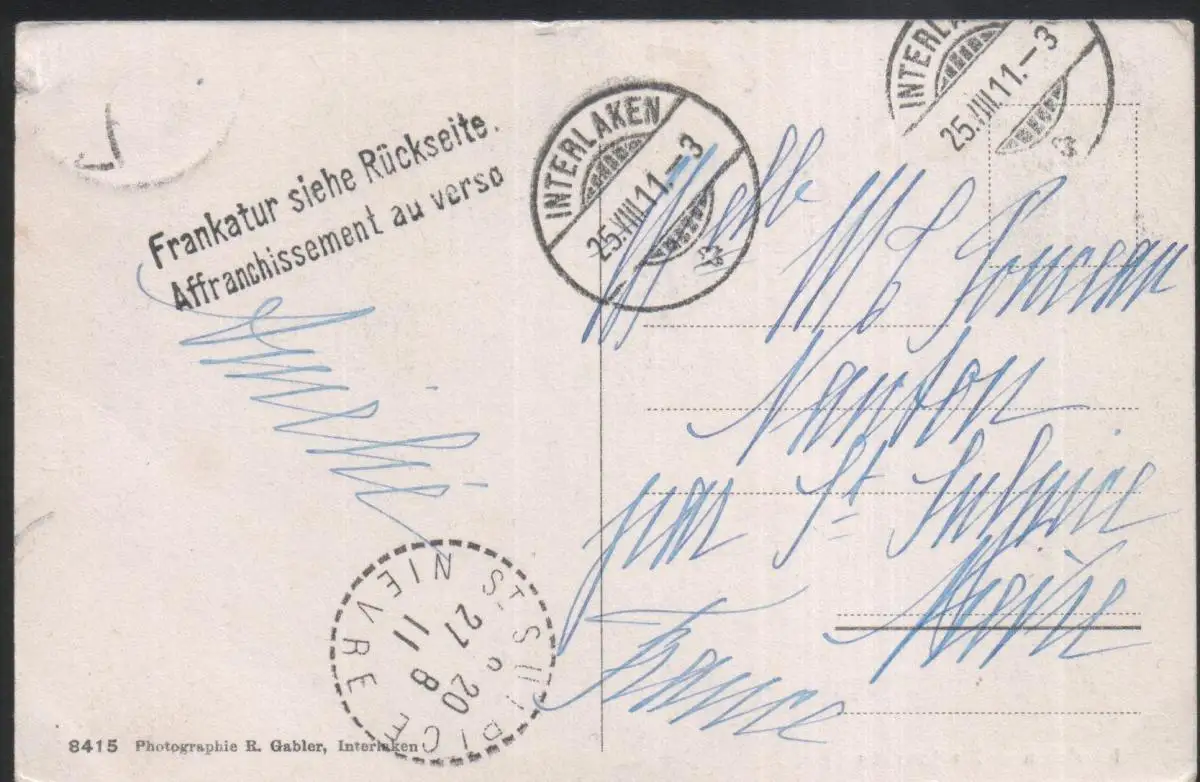 Frankatur siehe Rückseite.
Affranchissement au verso
INTERLAKEN
25.VIII.11.-3
INTERLA
25.VIII.11.-3
Melle M L
Nanton
par St Sulpice
Nièvre
France
ST SULPICE
NIEVRE
20
27 8
11
8415 Photographie R. Gabler, Interlaken